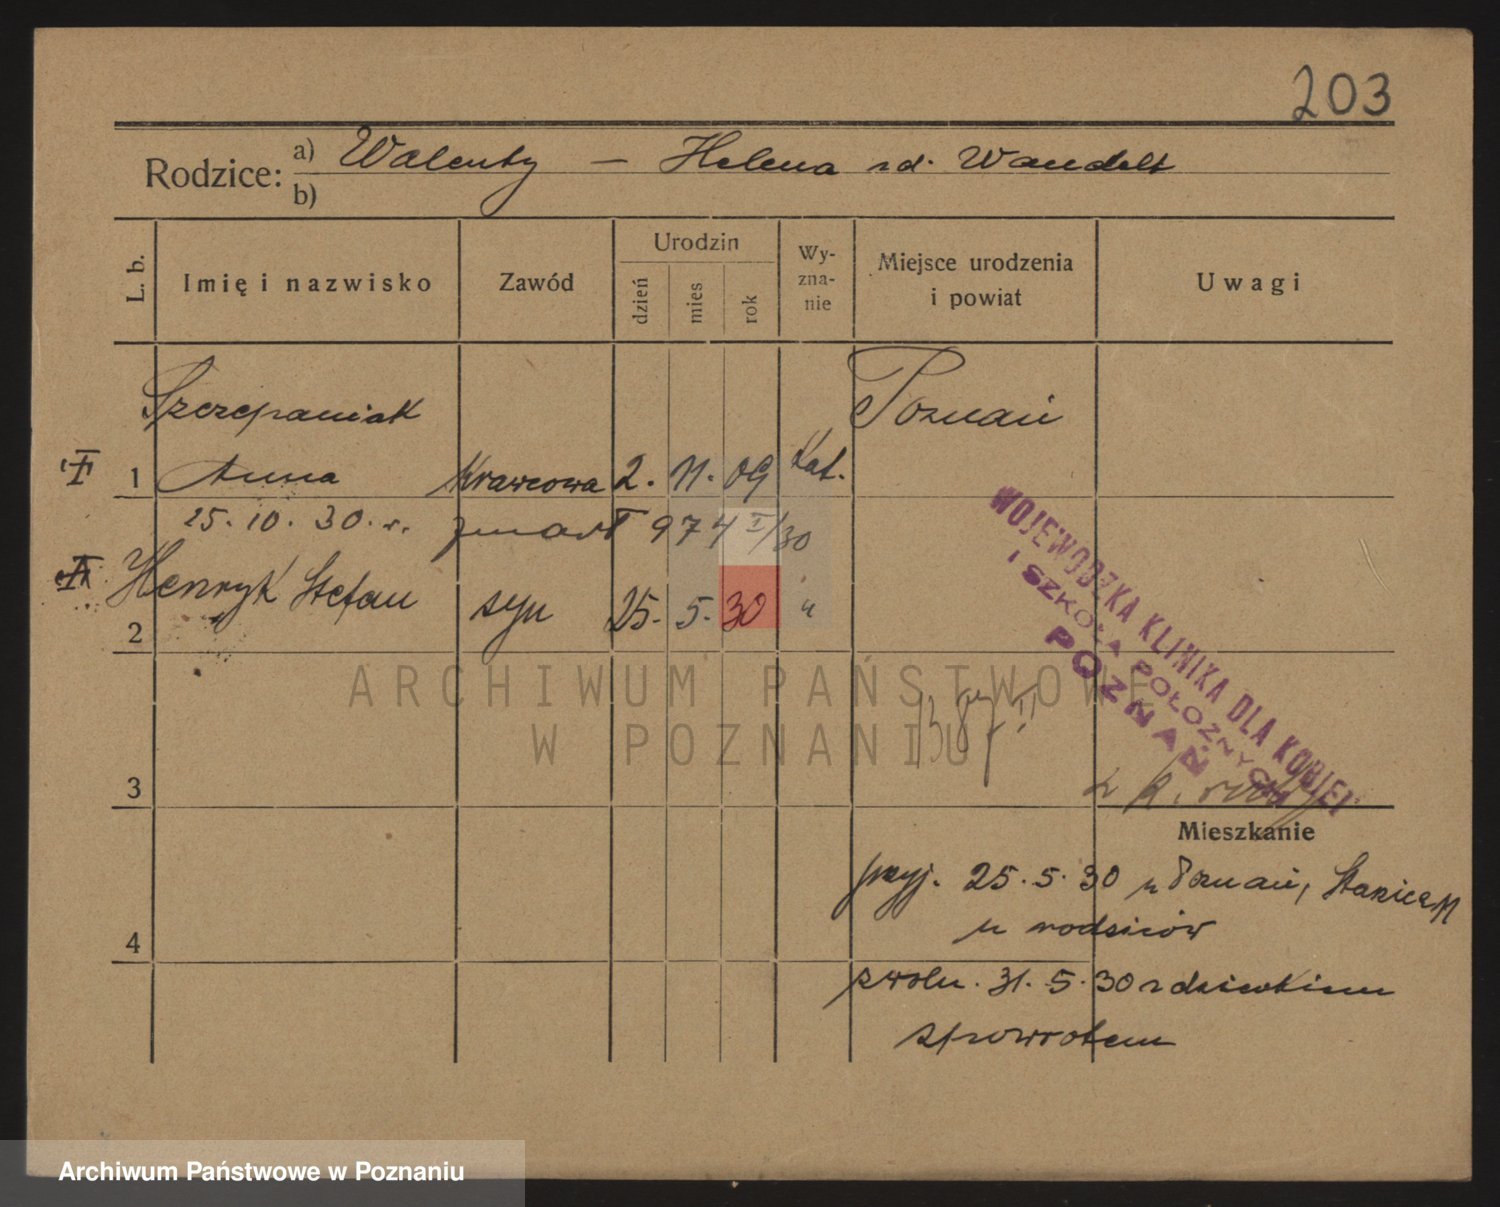 203
Rodzice: a) Walenty — Helena zd. Wandelt
b)
L. b.
Imię i nazwisko
Zawód
Urodzin
dzień
mies
rok
Wy-
zna-
nie
Miejsce urodzenia
i powiat
Uwagi
Szczepaniak
Poznań
1 Anna Krawcowa 2. 11. 09 Kat.
25. 10. 30. r. zmarł 974 I/30
Henryk Stefan syn 25. 5. 30 "
2
WOJEWÓDZKA KLINIKA DLA KOBIET
I SZKOŁA POŁOŻNYCH
POZNAŃ
ARCHIWUM PAŃSTWOWE
W POZNANIU
3
Mieszkanie
przyj. 25. 5. 30 z Poznań,
u rodziców
4
zwoln. 31. 5. 30 z dzieckiem
zpowrotem
Archiwum Państwowe w Poznaniu